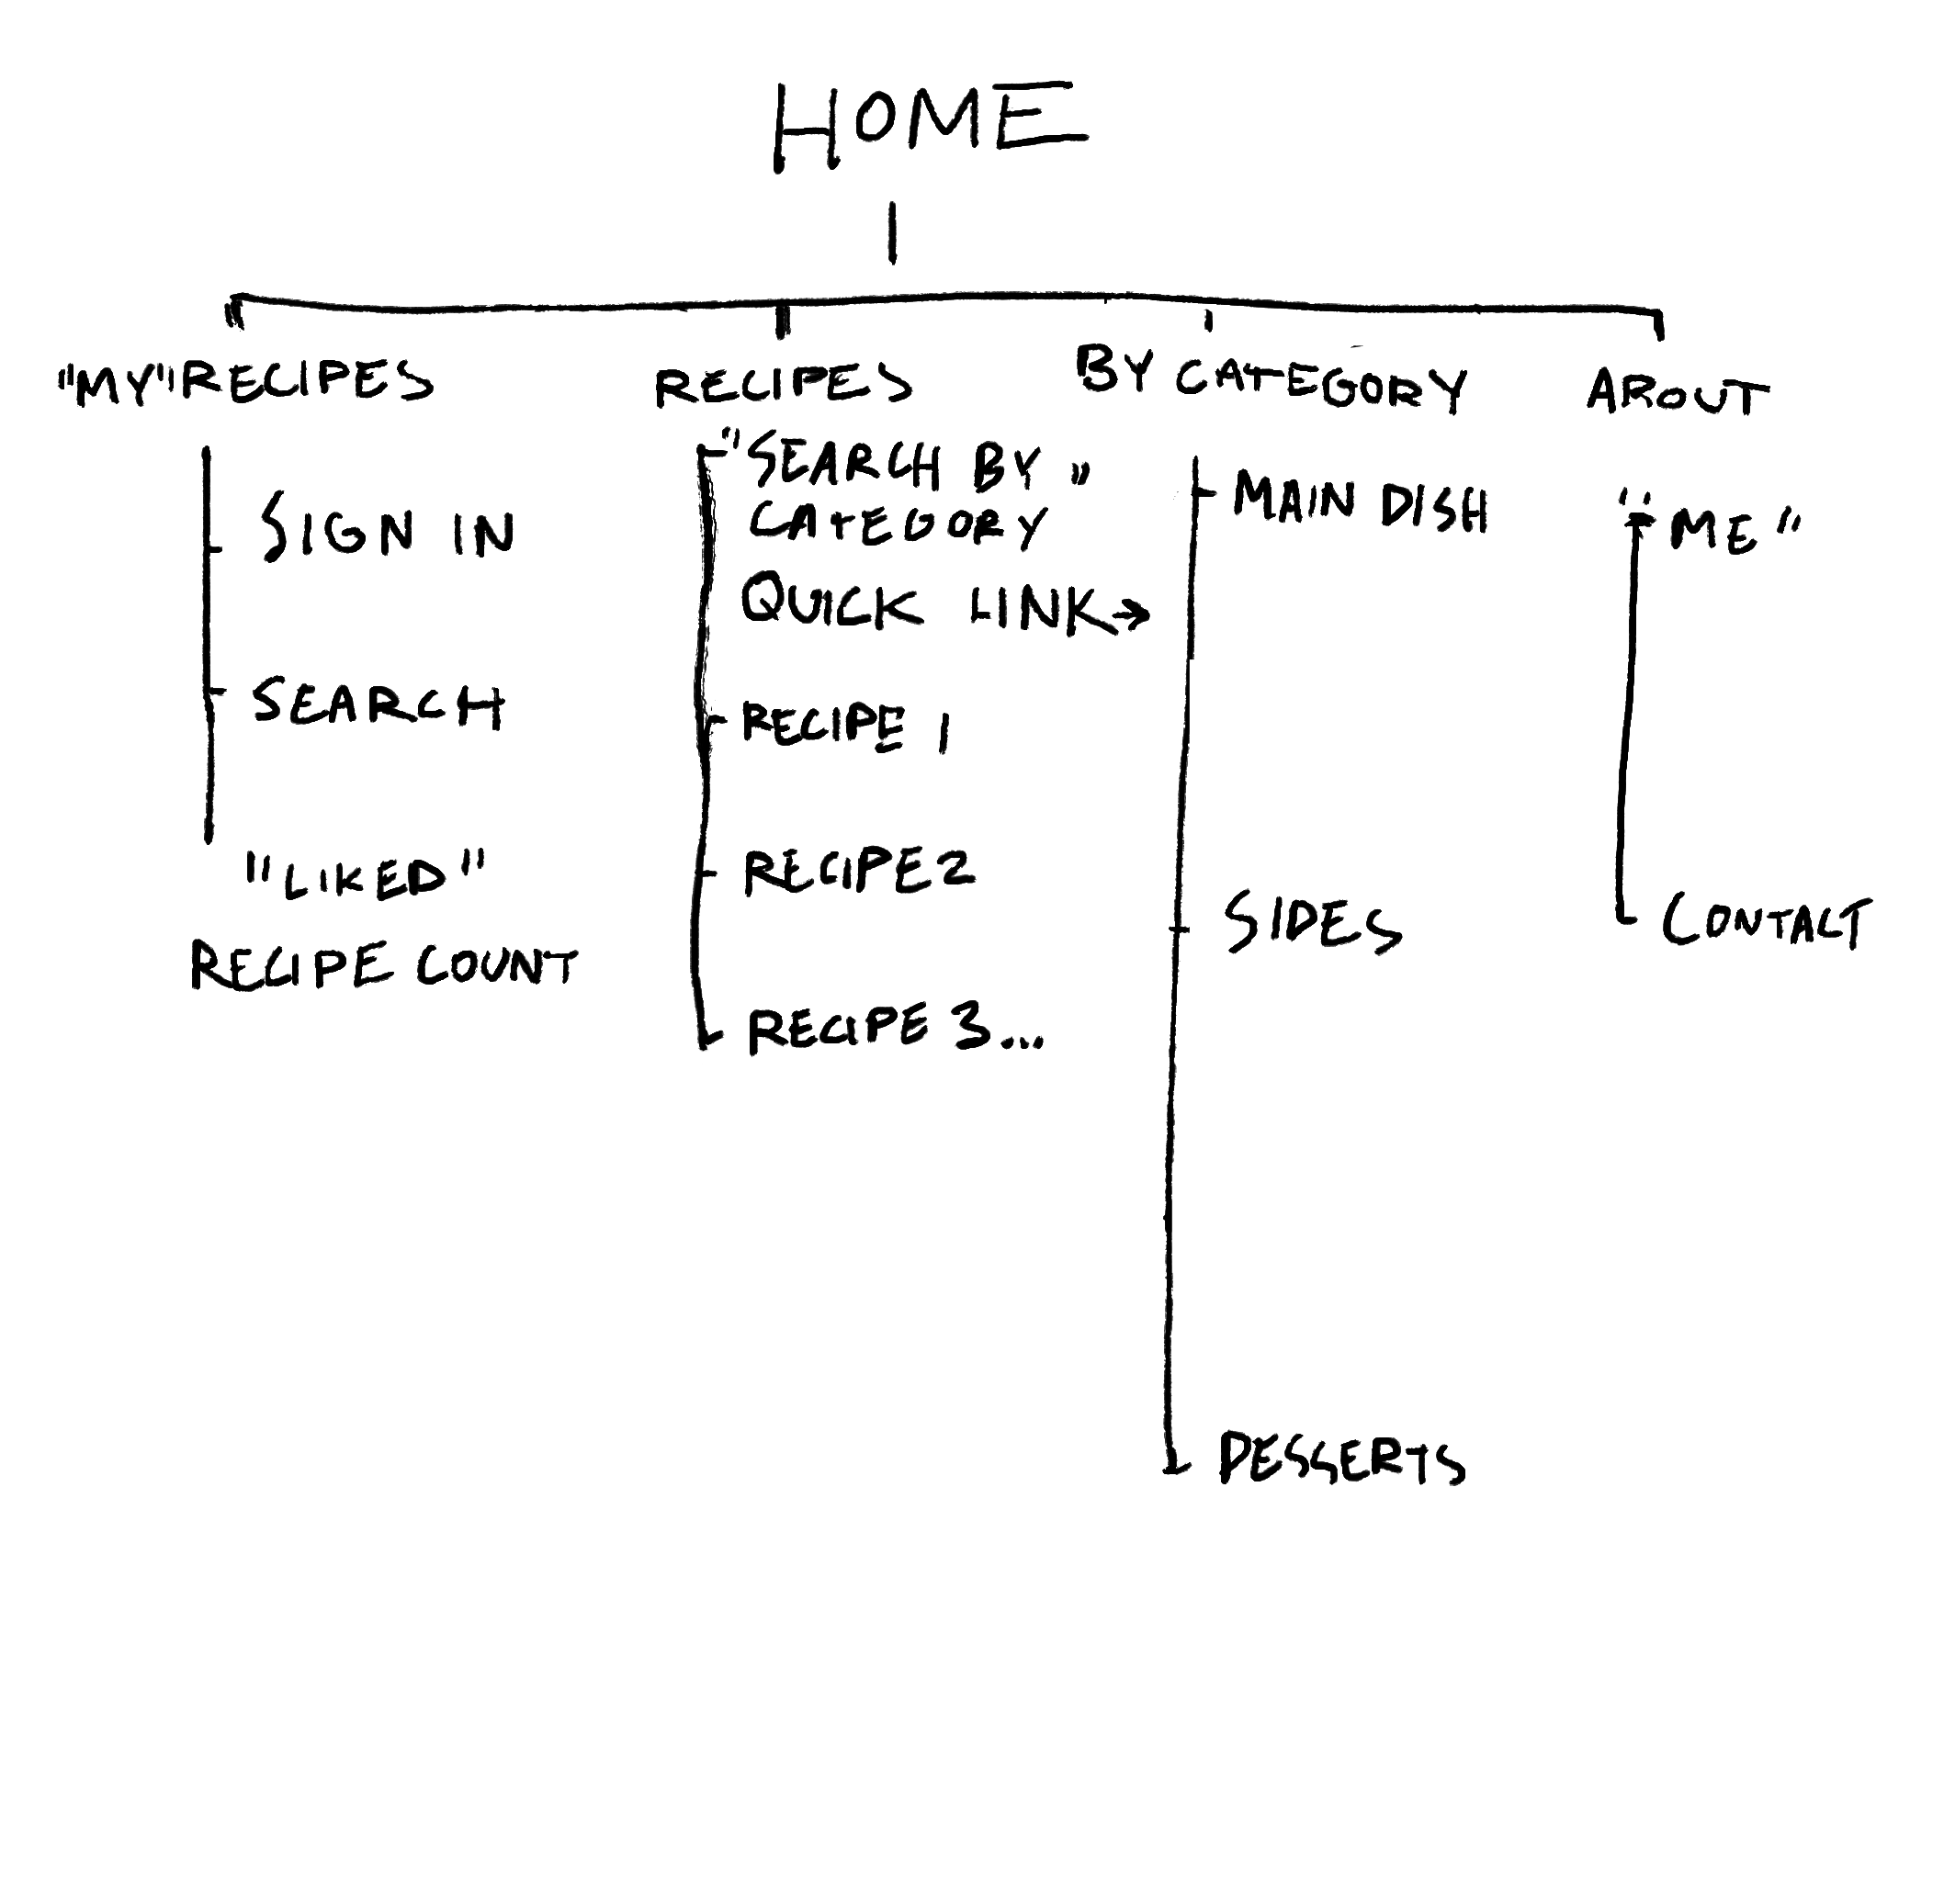 HOME
"MY" RECIPES
SIGN IN
SEARCH
"LIKED"
RECIPE COUNT
RECIPES
"SEARCH BY"
CATEGORY
QUICK LINK→
RECIPE 1
RECIPE 2
RECIPE 3...
BY CATEGORY
MAIN DISH
SIDES
DESSERTS
ABOUT
"ME"
CONTACT